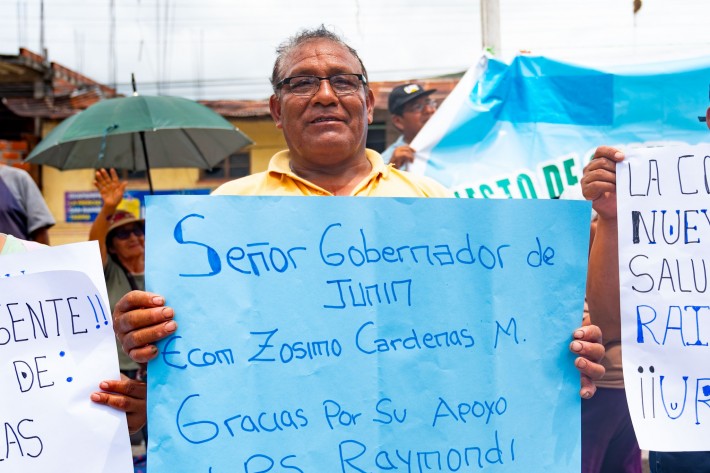 ESENTE!!
DE:
AS
Señor Gobernador de
Junin
Econ Zosimo Cardenas M.
Gracias Por Su Apoyo
I.P.S. Raymondi
STO DE
LA CO
NUEV
SALU
RAI
¡¡UR